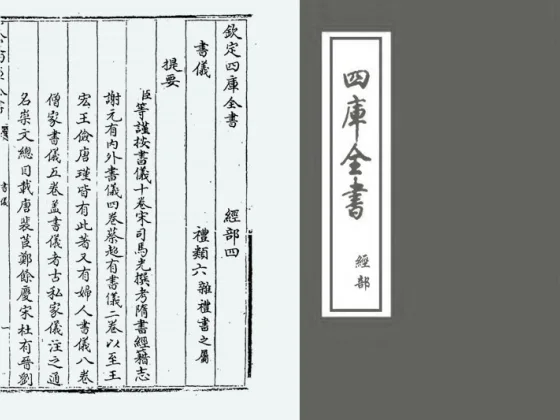 欽定四庫全書 經部四
書儀 禮類六雜禮書之屬
提要
臣等謹按書儀十卷宋司馬光撰考隋書經籍志
謝元有內外書儀四卷蔡超有書儀二卷以至王
宏王儉唐瑾皆有此著又有婦人書儀八卷
僧家書儀五卷蓋書儀者古私家儀注之通
名崇文總目載唐裴茝鄭餘慶宋杜有晉劉
書儀
一
四庫全書
經部